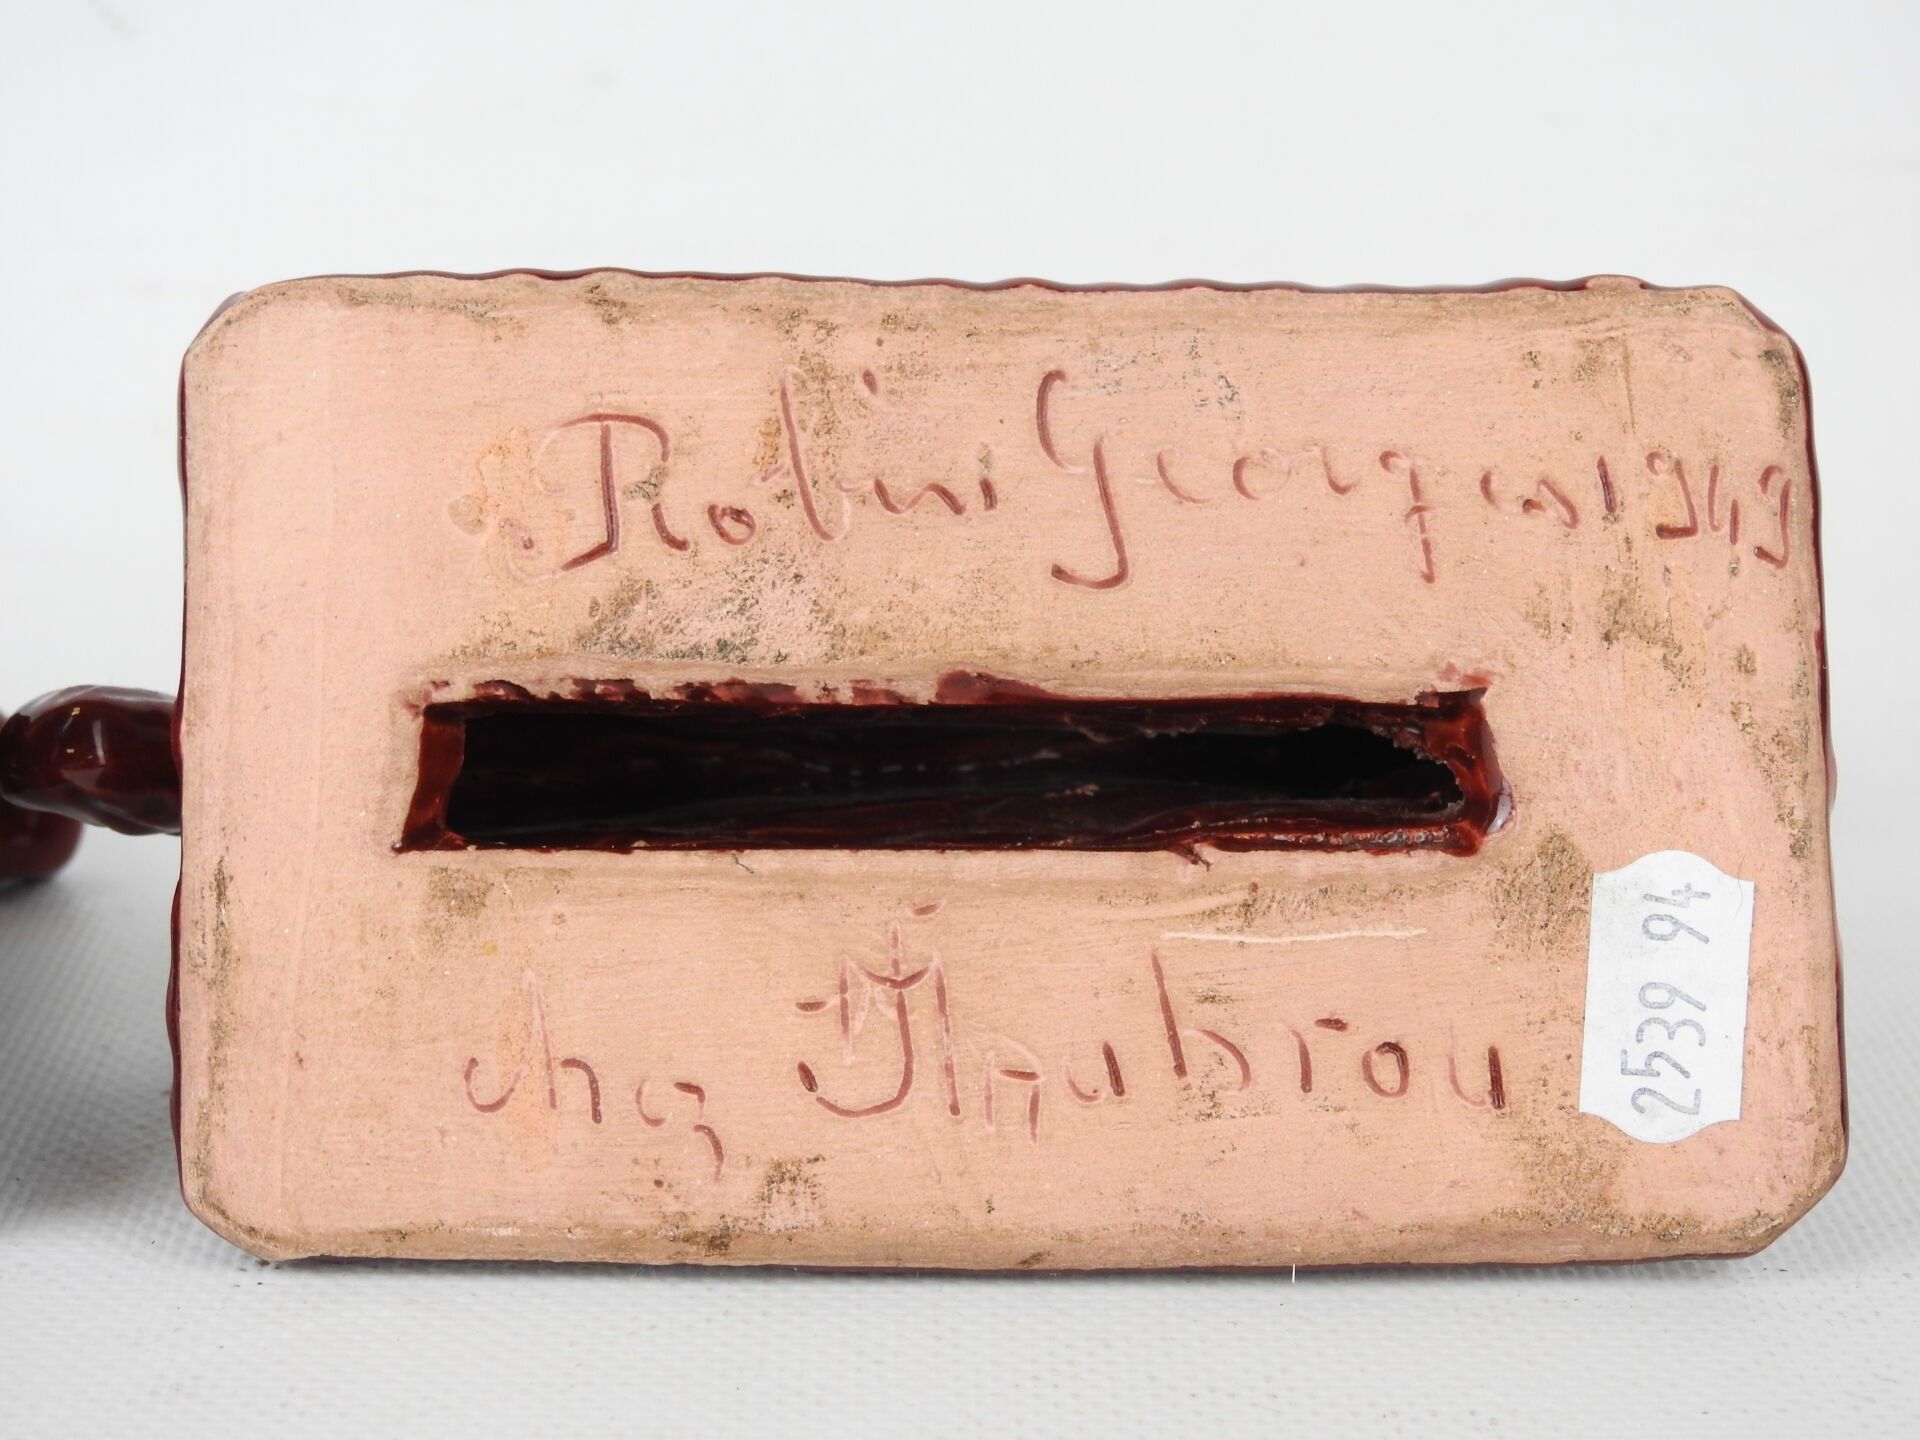 Robin Georges 1949
chez Maubrou
2539 94